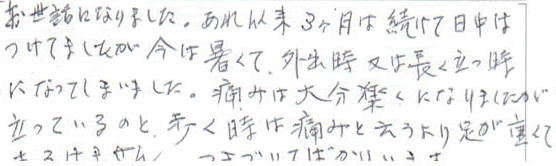 お世話になりました。あれ以来3ヶ月は続けて日中は
つけてましたが今は暑くて、外出時又は長く立つ時
になってしまいました。痛みは大分楽くになりましたが
立っているのと、歩く時は痛みと云うより足が重くて
あるけません。つまづいてばかりいます